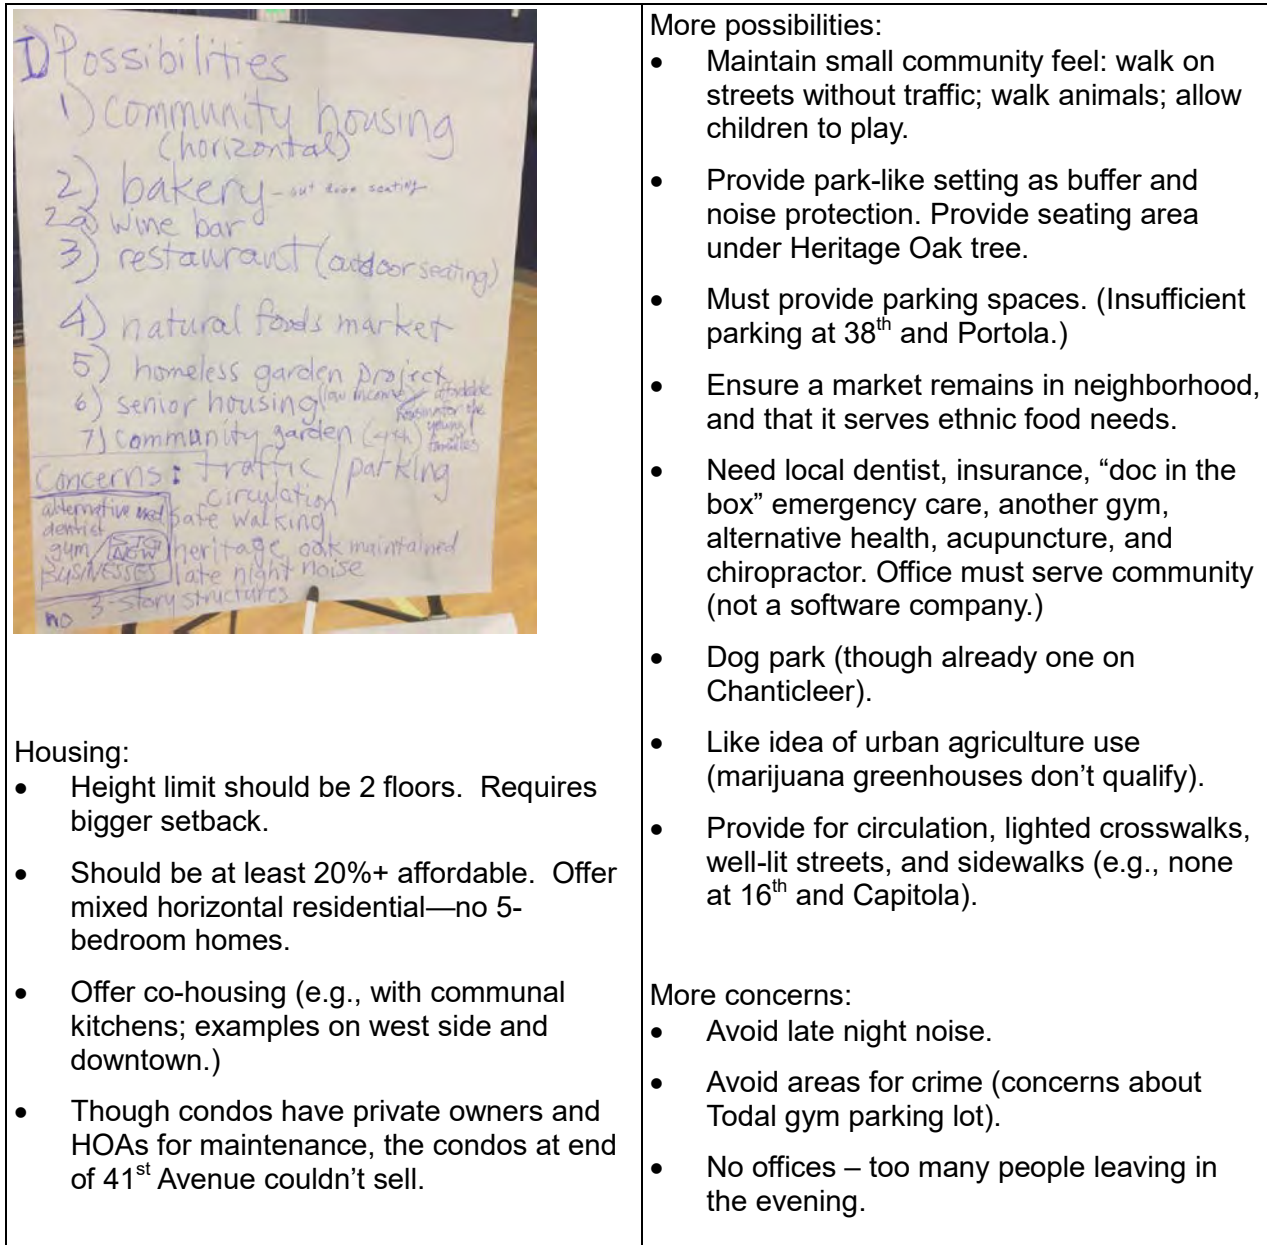 I) Possibilities
1) Community housing
(horizontal)
2) bakery - out door seating
2a wine bar
3) restaurant (outdoor seating)
4) natural foods market
5) homeless garden project
6) senior housing (low income) affordable
housing for the
young
families
7) Community garden
Concerns: traffic / parking
circulation
alternative med
dentist
gym
BUSINESSES
safe walking
heritage oak maintained
late night noise
no 3-story structures
Housing:
• Height limit should be 2 floors.  Requires
bigger setback.
• Should be at least 20%+ affordable.  Offer
mixed horizontal residential—no 5-
bedroom homes.
• Offer co-housing (e.g., with communal
kitchens; examples on west side and
downtown.)
• Though condos have private owners and
HOAs for maintenance, the condos at end
of 41st Avenue couldn’t sell.
More possibilities:
• Maintain small community feel: walk on
streets without traffic; walk animals; allow
children to play.
• Provide park-like setting as buffer and
noise protection. Provide seating area
under Heritage Oak tree.
• Must provide parking spaces. (Insufficient
parking at 38th and Portola.)
• Ensure a market remains in neighborhood,
and that it serves ethnic food needs.
• Need local dentist, insurance, “doc in the
box” emergency care, another gym,
alternative health, acupuncture, and
chiropractor. Office must serve community
(not a software company.)
• Dog park (though already one on
Chanticleer).
• Like idea of urban agriculture use
(marijuana greenhouses don’t qualify).
• Provide for circulation, lighted crosswalks,
well-lit streets, and sidewalks (e.g., none
at 16th and Capitola).
More concerns:
• Avoid late night noise.
• Avoid areas for crime (concerns about
Todal gym parking lot).
• No offices – too many people leaving in
the evening.